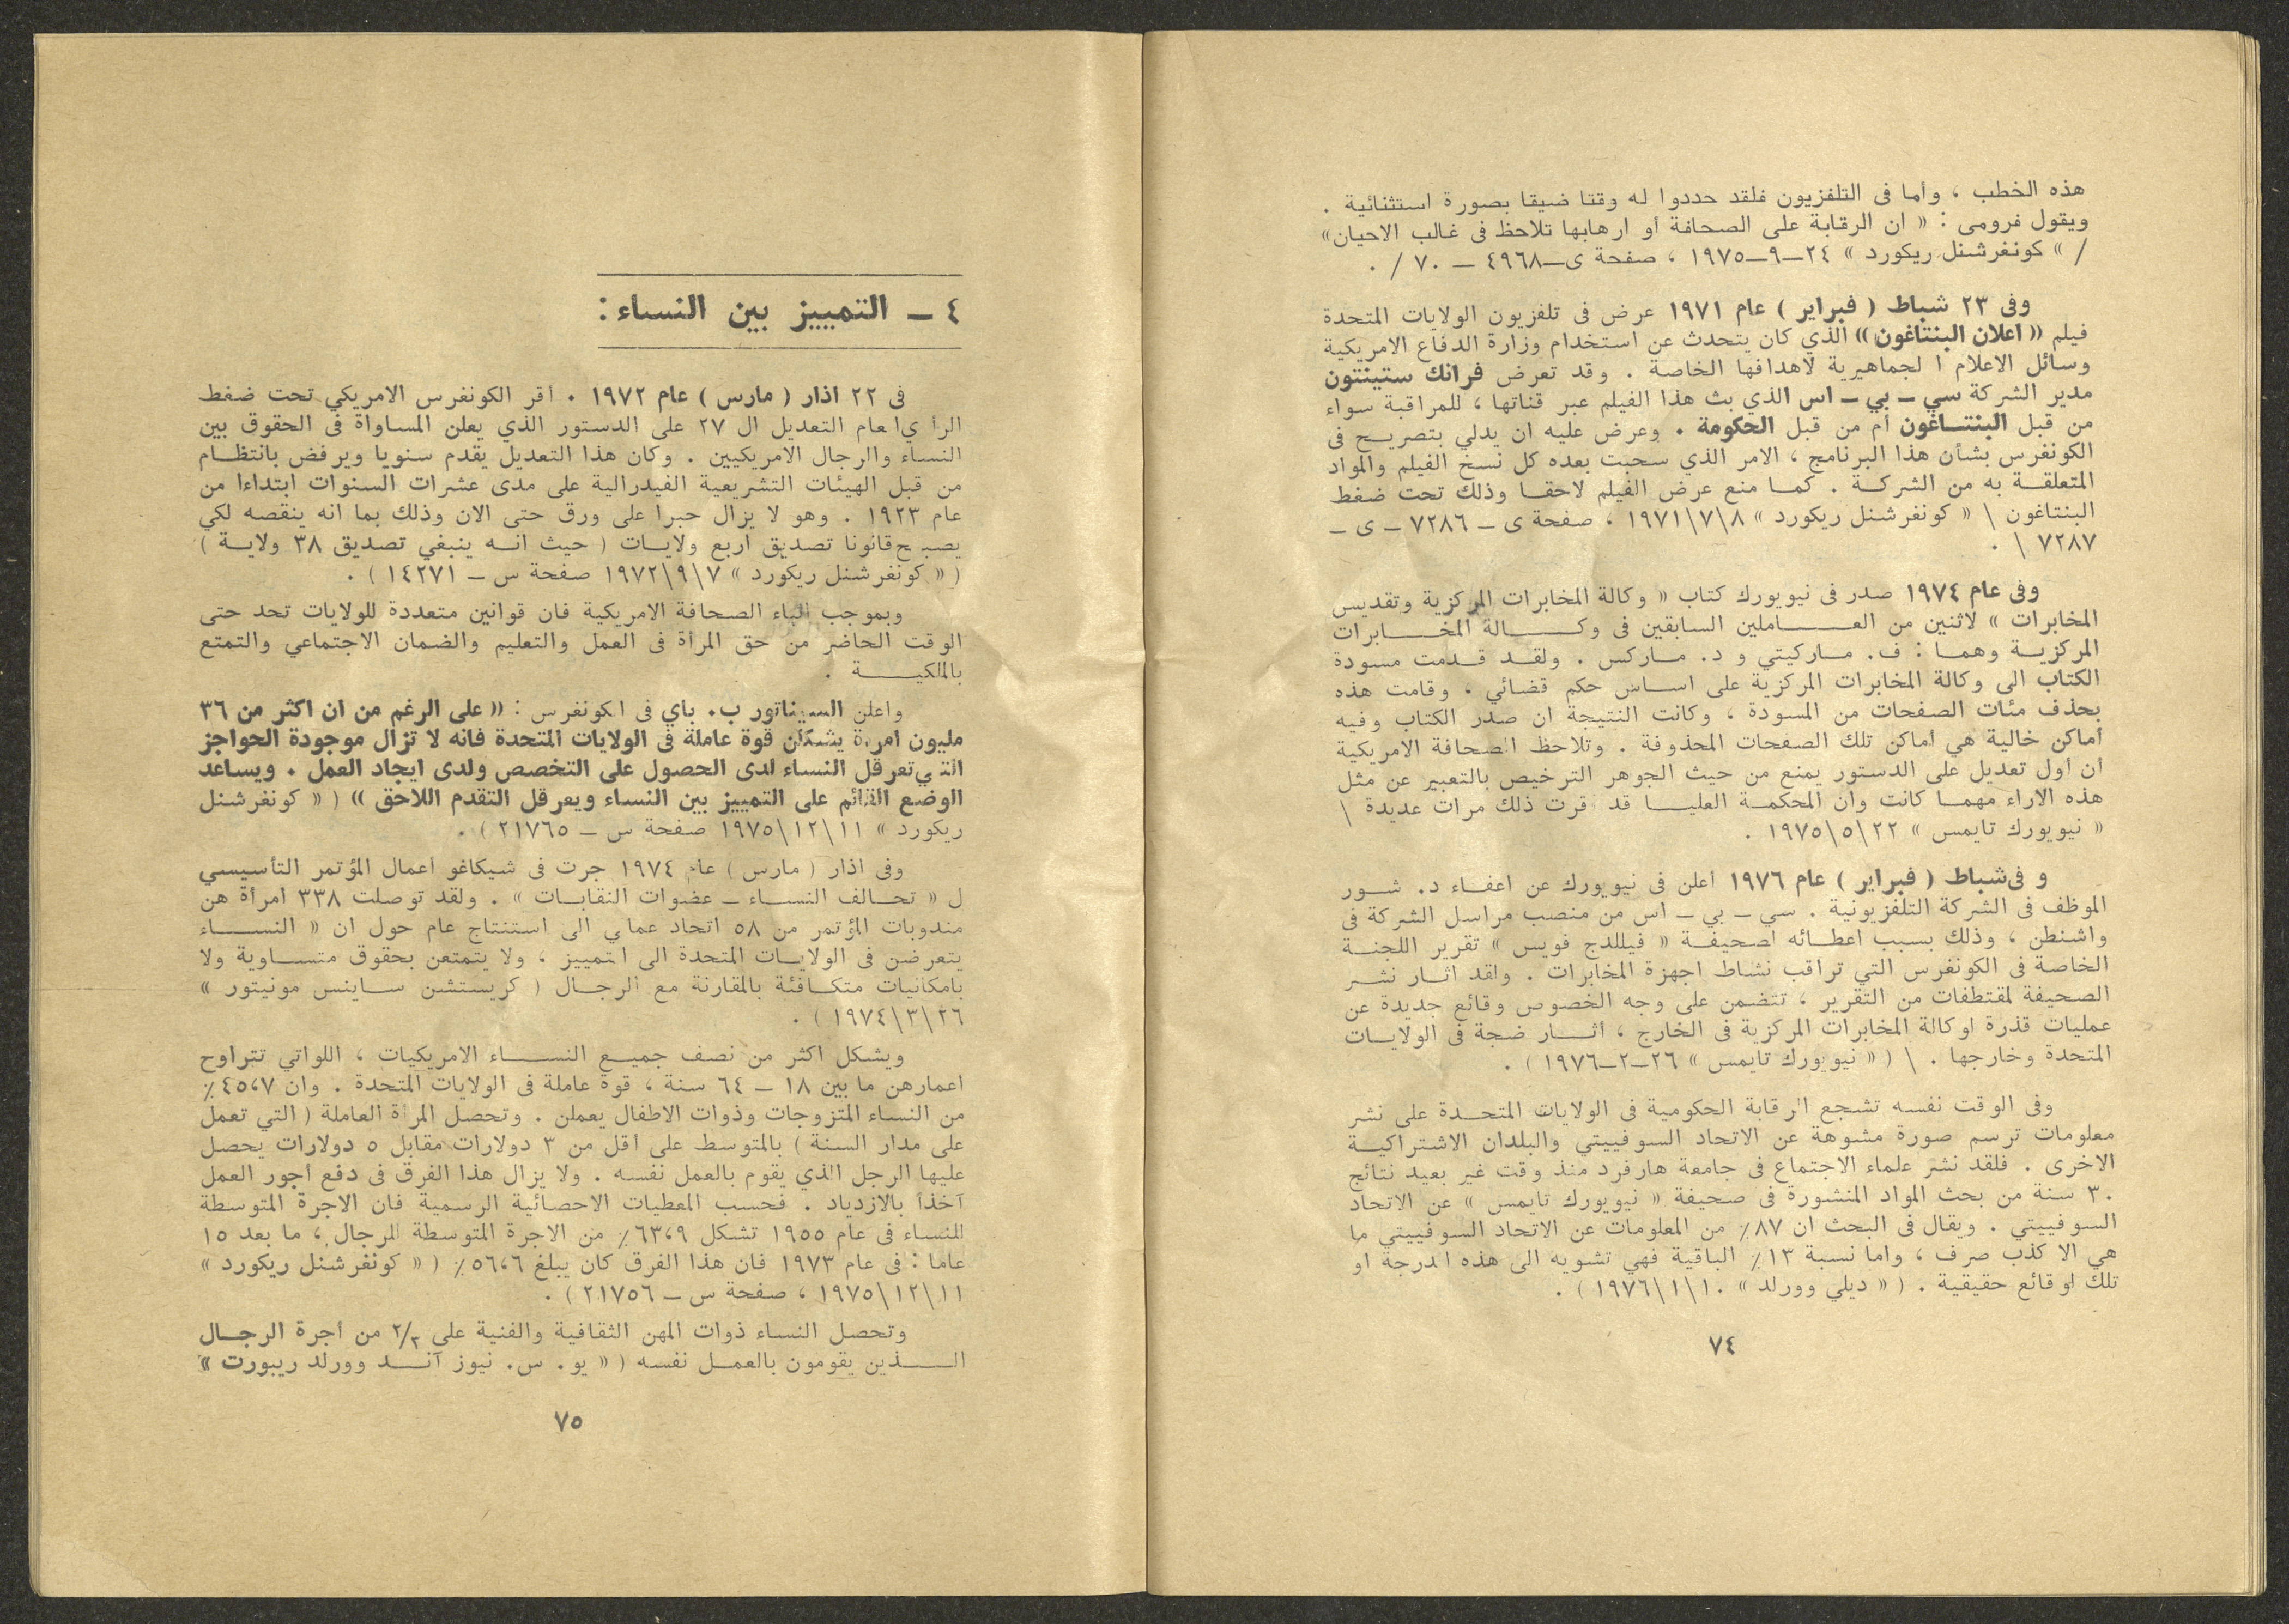 هذه الخطب ، وأما فى التلفزيون فلقد حددوا له وقتا ضيقا بصورة استثنائية .
ويقول فرومى : « ان الرقابة على الصحافة أو ارهابها تلاحظ فى غالب الاحيان»
/ » كونغرشنل ريكورد » ٢٤–٩–١٩٧٥ ، صفحة ى–٤٩٦٨ – ٧٠ / .
وفى ٢٣ شباط ( فبراير ) عام ١٩٧١ عرض فى تلفزيون الولايات المتحدة
فيلم « اعلان البنتاغون» الذي كان يتحدث عن استخدام وزارة الدفاع الامريكية
وسائل الاعلام ا لجماهيرية لاهدافها الخاصة . وقد تعرض فرانك ستينتون
مدير الشركة سي – بي – اس الذي بث هذا الفيلم عبر قناتها ، للمراقبة سواء
من قبل البنتاغون أم من قبل الحكومة . وعرض عليه ان يدلي بتصريح فى
الكونغرس بشأن هذا البرنامج ، الامر الذي سحبت بعده كل نسخ الفيلم والمواد
المتعلقة به من الشركة . كما منع عرض الفيلم لاحقا وذلك تحت ضغط
البنتاغون \ « كونغرشنل ريكورد » ٨\٧\١٩٧١ ، صفحة ى – ٧٢٨٦ – ى –
٧٢٨٧ \ .
وفى عام ١٩٧٤ صدر فى نيويورك كتاب « وكالة المخابرات المركزية وتقديس
المخابرات » لاثنين من العاملين السابقين فى وكالة المخابرات
المركزية وهما : ف. ماركيتي و د. ماركس . ولقد قدمت مسودة
الكتاب الى وكالة المخابرات المركزية على اساس حكم قضائي ، وقامت هذه
بحذف مئات الصفحات من المسودة ، وكانت النتيجة ان صدر الكتاب وفيه
أماكن خالية هي أماكن تلك الصفحات المحذوفة . وتلاحظ الصحافة الامريكية
أن أول تعديل على الدستور يمنع من حيث الجوهر الترخيص بالتعبير عن مثل
هذه الاراء مهما كانت وأن المحكمة العليا قد قرت ذلك مرات عديدة \
« نيويورك تايمس » ٢٢\٥\١٩٧٥ .
و فىشباط ( فبراير ) عام ١٩٧٦ أعلن فى نيويورك عن اعفاء د. شور
الموظف فى الشركة التلفزيونية . سي – بي – اس من منصب مراسل الشركة فى
واشنطن ، وذلك بسبب اعطائه لصحيفة « فيللدج فويس » تقرير اللجنة
الخاصة فى الكونغرس التي تراقب نشاط اجهزة المخابرات . ولقد اثار نشر
الصحيفة لمقتطفات من التقرير ، تتضمن على وجه الخصوص وقائع جديدة عن
عمليات قذرة لوكالة المخابرات المركزية فى الخارج ، أثار ضجة فى الولايات
المتحدة وخارجها . \ ( « نيويورك تايمس » ٢٦–٢–١٩٧٦ ) .
وفى الوقت نفسه تشجع الرقابة الحكومية فى الولايات المتحدة على نشر
معلومات ترسم صورة مشوهة عن الاتحاد السوفييتي والبلدان الاشتراكية
الاخرى . فلقد نشر علماء الاجتماع فى جامعة هارفرد منذ وقت غير بعيد نتائج
٣٠ سنة من بحث المواد المنشورة فى صحيفة « نيويورك تايمس » عن الاتحاد
السوفييتي . ويقال فى البحث ان ٨٧٪ من المعلومات عن الاتحاد السوفييتي ما
هي الا كذب صرف ، واما نسبة ١٣٪ الباقية فهي تشويه الى هذه الدرجة او
تلك لوقائع حقيقية . ( « ديلي وورلد » ١٠\١\١٩٧٦ ) .
٧٤
٤ – التمييز بين النساء :
فى ٢٢ اذار ( مارس ) عام ١٩٧٢ . أقر الكونغرس الامريكي تحت ضغط
الرأ يالعام التعديل ال ٢٧ على الدستور الذي يعلن المساواة فى الحقوق بين
النساء والرجال الامريكيين . وكان هذا التعديل يقدم سنويا ويرفض بانتظام
من قبل الهيئات التشريعية الفيدرالية على مدى عشرات السنوات ابتداءا من
عام ١٩٢٣ . وهو لا يزال حبرا على ورق حتى الان وذلك بما انه ينقصه لكي
يصبح قانونا تصديق أربع ولايات ( حيث انه ينبغي تصديق ٣٨ ولاية )
( « كونغرشنل ريكورد » ٧\٩\١٩٧٢ صفحة س – ١٤٢٧١ ) .
وبموجب انباء الصحافة الامريكية فان قوانين متعددة للولايات تحد حتى
الوقت الحاضر من حق المرأة فى العمل والتعليم والضمان الاجتماعي والتمتع
بالملكية .
واعلن السيناتور ب. باي فى الكونغرس : « على الرغم من ان اكثر من ٣٦
مليون امرأة يشكلن قوة عاملة فى الولايات المتحدة فانه لا تزال موجودة الحواجز
التي تعرقل النساء لدى الحصول على التخصص ولدى ايجاد العمل . ويساعد
الوضع القائم على التمييز بين النساء ويعرقل التقدم اللاحق » ( « كونغرشنل
ريكورد » ١١\١٢\١٩٧٥ صفحة س – ٢١٧٦٥ ) .
وفى اذار ( مارس ) عام ١٩٧٤ جرت فى شيكاغو أعمال المؤتمر التأسيسي
ل « تحالف النساء – عضوات النقابات » . ولقد توصلت ٣٣٨ امرأة هن
مندوبات المؤتمر من ٥٨ اتحاد عمالي الى استنتاج عام حول ان « النساء
يتعرضن فى الولايات المتحدة الى التمييز ، ولا يتمتعن بحقوق متساوية ولا
بامكانيات متكافئة بالمقارنة مع الرجال ( كريستشن ساينس مونيتور »
٢٦\٣\١٩٧٤ ) .
ويشكل اكثر من نصف جميع النساء الامريكيات ، اللواتي تتراوح
اعمارهن ما بين ١٨ – ٦٤ سنة ، قوة عاملة فى الولايات المتحدة . وان ٤٥،٧٪
من النساء المتزوجات وذوات الاطفال يعملن . وتحصل المرأة العاملة ( التي تعمل
على مدار السنة ) بالمتوسط على أقل من ٣ دولارات مقابل ٥ دولارات يحصل
عليها الرجل الذي يقوم بالعمل نفسه . ولا يزال هذا الفرق فى دفع أجور العمل
آخذاً بالازدياد . فحسب المعطيات الاحصائية الرسمية فان الاجرة المتوسطة
للنساء فى عام ١٩٥٥ تشكل ٦٣،٩٪ من الاجرة المتوسطة للرجال ، ما بعد ١٥
عاما : فى عام ١٩٧٣ فان هذا الفرق كان يبلغ ٥٦،٦٪ ( « كونغرشنل ريكورد »
١١\١٢\١٩٧٥ ، صفحة س – ٢١٧٥٦ ) .
وتحصل النساء ذوات المهن الثقافية والفنية على من أجرة الرجال
الذين يقومون بالعمل نفسه ( « يو. س. نيوز آند وورلد ريبورت »
٧٥